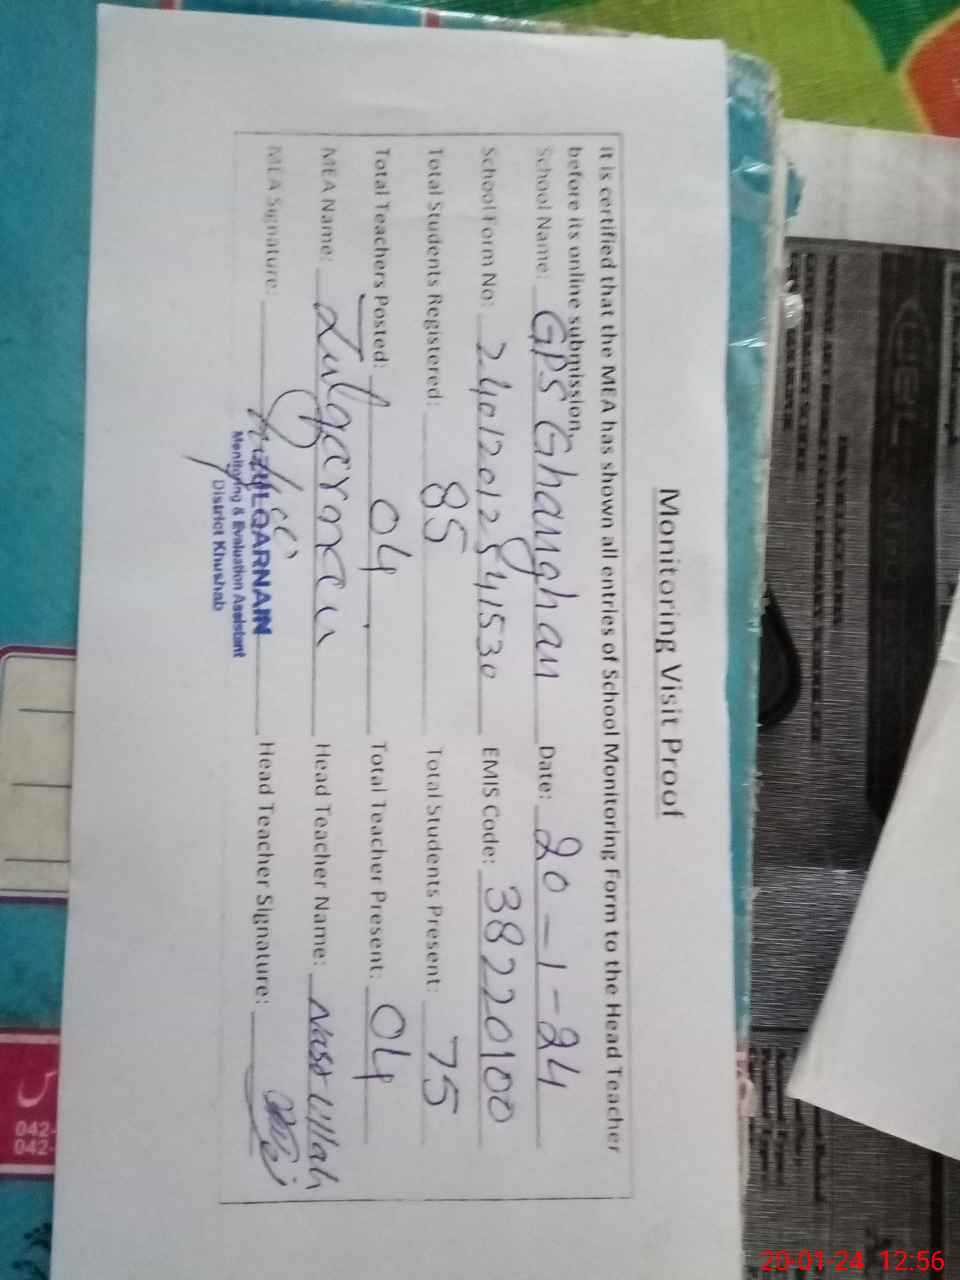 Monitoring Visit Proof
It is certified that the MEA has shown all entries of School Monitoring Form to the Head Teacher
before its online submission.
School Name: GPS Ghanghan Date: 20-1-24
School Form No: EMIS Code: 38220100
Total Students Registered: 85 Total Students Present: 75
Total Teachers Posted: 04 Total Teacher Present: 04
MEA Name: Zulqarnain Head Teacher Name: Nasr Ullah
MEA Signature: Head Teacher Signature:
ZULQARNAIN
Monitoring & Evaluation Assistant
District Khushab
042-
042-
20-01-24 12:56